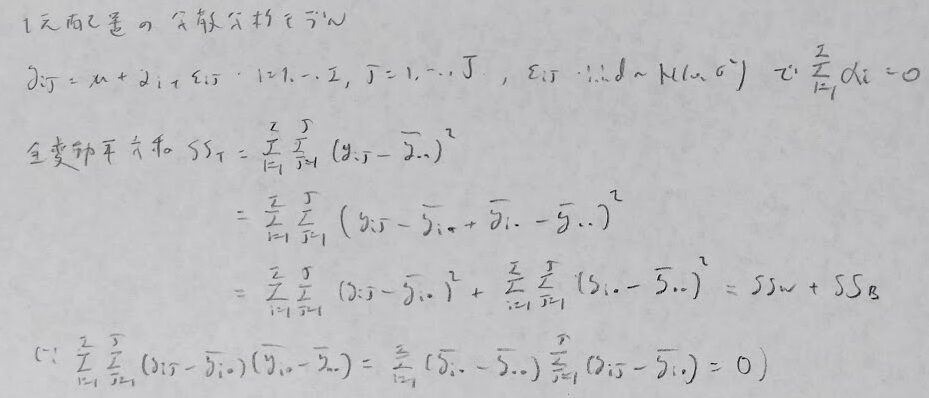 1元配置の分散分析モデル
y_{ij} = μ + α_i + ε_{ij} , i=1,…I, j=1,…J , ε_{ij} iid ~ N(0, σ²) で \sum_{i=1}^{I} α_i = 0
全変動平方和 SS_T = \sum_{i=1}^{I} \sum_{j=1}^{J} (y_{ij} - \bar{y}_{..})^2
= \sum_{i=1}^{I} \sum_{j=1}^{J} (y_{ij} - \bar{y}_{i.} + \bar{y}_{i.} - \bar{y}_{..})^2
= \sum_{i=1}^{I} \sum_{j=1}^{J} (y_{ij} - \bar{y}_{i.})^2 + \sum_{i=1}^{I} \sum_{j=1}^{J} (\bar{y}_{i.} - \bar{y}_{..})^2 = SS_W + SS_B
(∵ \sum_{i=1}^{I} \sum_{j=1}^{J} (y_{ij} - \bar{y}_{i.})(\bar{y}_{i.} - \bar{y}_{..}) = \sum_{i=1}^{I} (\bar{y}_{i.} - \bar{y}_{..}) \sum_{j=1}^{J} (y_{ij} - \bar{y}_{i.}) = 0)